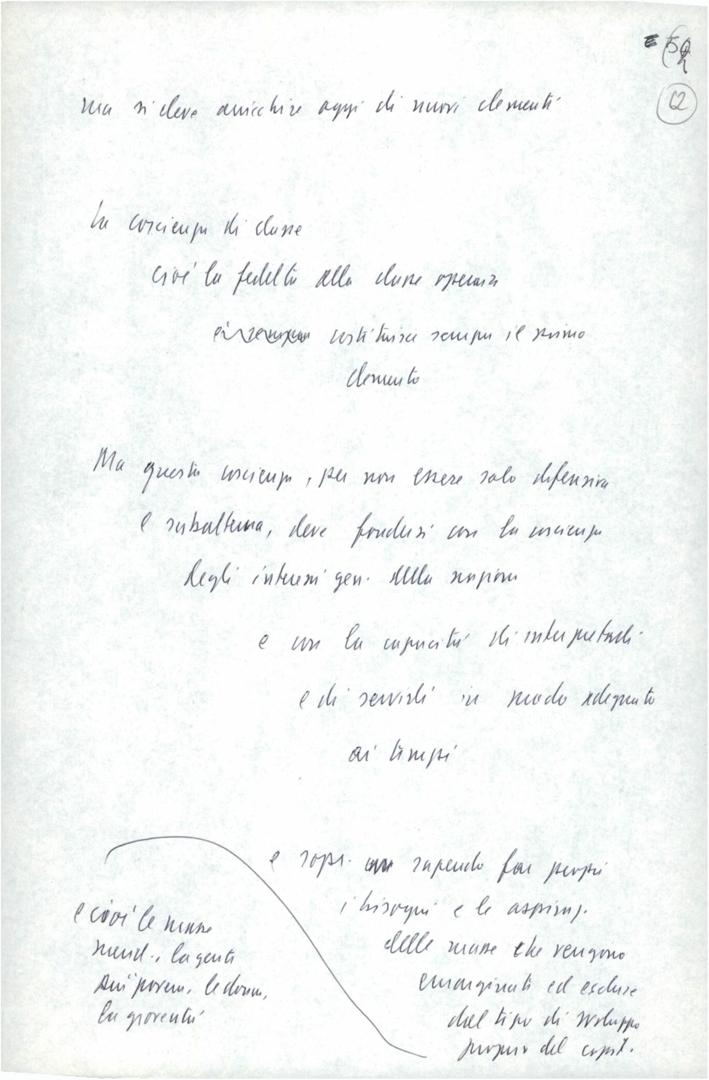 62
ma si deve arricchire oggi di nuovi elementi
La coscienza di classe
cioè la fedeltà alla classe operaia
costituisce sempre il primo
elemento
Ma questa coscienza, per non essere solo difensiva
e subalterna, deve fondersi con la coscienza
degli interessi gen. della nazione
e con la capacità di interpretarli
e di servirli in modo adeguato
ai tempi
e sopr. sapendo fare propri
i bisogni e le aspiraz.
delle masse che vengono
emarginate ed escluse
dal tipo di sviluppo
proprio del capit.
e cioè le masse
merid., la gente
più povera, le donne,
la gioventù